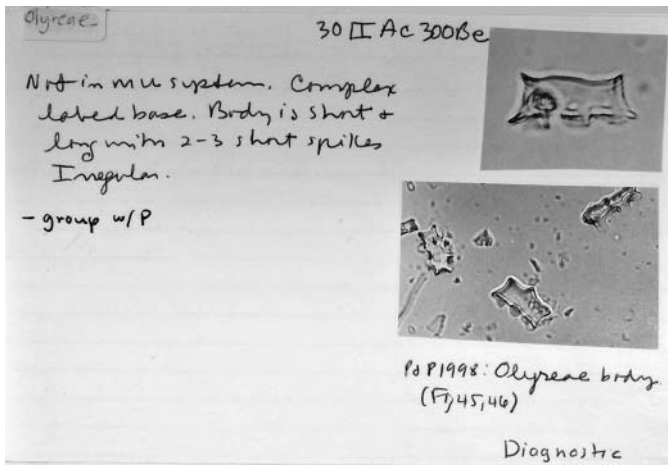 Olyreae
30 II Ac 300Be
Not in MU system. Complex
lobed base. Body is short &
long with 2-3 short spikes
Irregular.
- group w/P
P&P1998: Olyreae body
(F,45,46)
Diagnostic